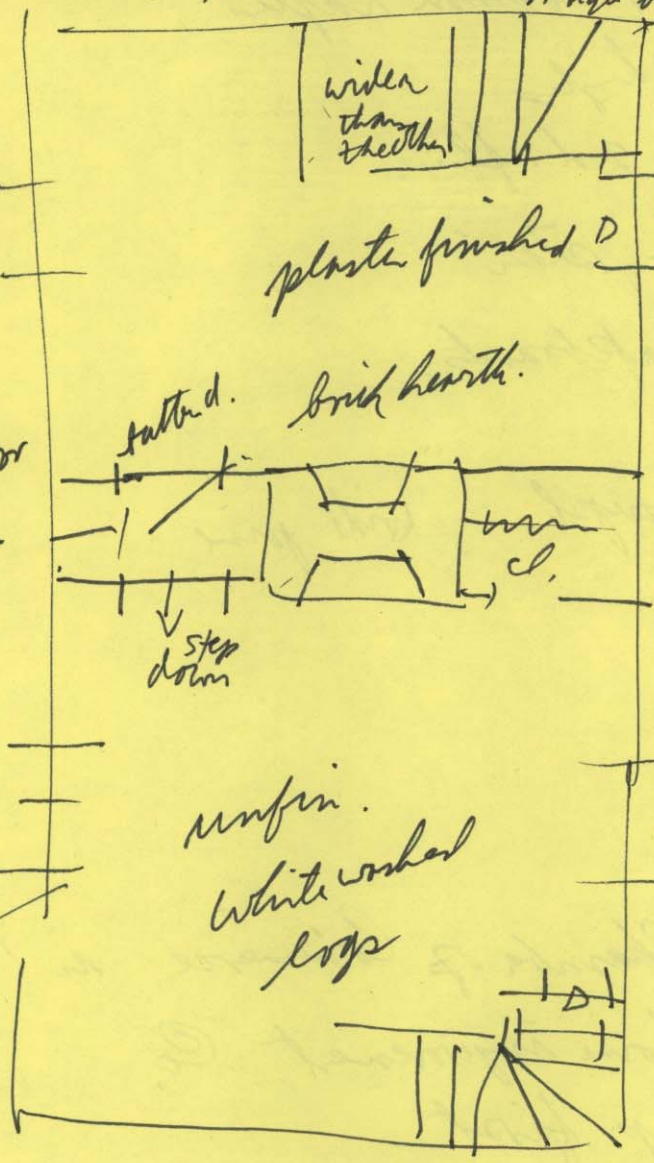 wider
than
the other
plaster finished D
brick hearth.
batt. d.
or
cl.
step
down
unfin.
whitewashed
logs
D